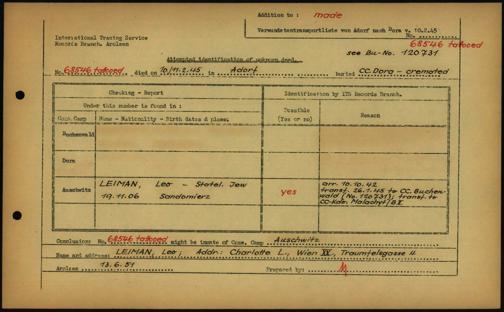 Addition to : made
International Tracing Service
Records Branch, Arolsen
Verwundetentransportliste von Adorf nach Dora v. 10.2.45
No. 68546 tattooed
see Bu-No. 120731
Attempted identification of unknown dead.
No. 68546 tattooed died on 10/11.2.45 in Adorf Buried CC. Dora - cremated
Checking - Report
Identification by ITS Records Branch.
Under this number is found in :
Possible (Yes or no)
Reason
Conc. Camp
Name - Nationality - Birth dates & place.
Buchenwald
Dora
Auschwitz
LEIMAN, Leo - Statel. Jew
19.11.06 Sandomierz
yes
arr. 10.10.42
transf. 26.1.45 to CC. Buchen-
wald (No. 120731); transf. to
CC-Kdo. Malachyt/BII
Conclusion: No. 68546 tattooed might be inmate of Conc. Camp Auschwitz
Name and address: LEIMAN, Leo; Addr: Charlotte L., Wien XX., Traunfelsgasse 4
Arolsen 13.6.51
Prepared by: